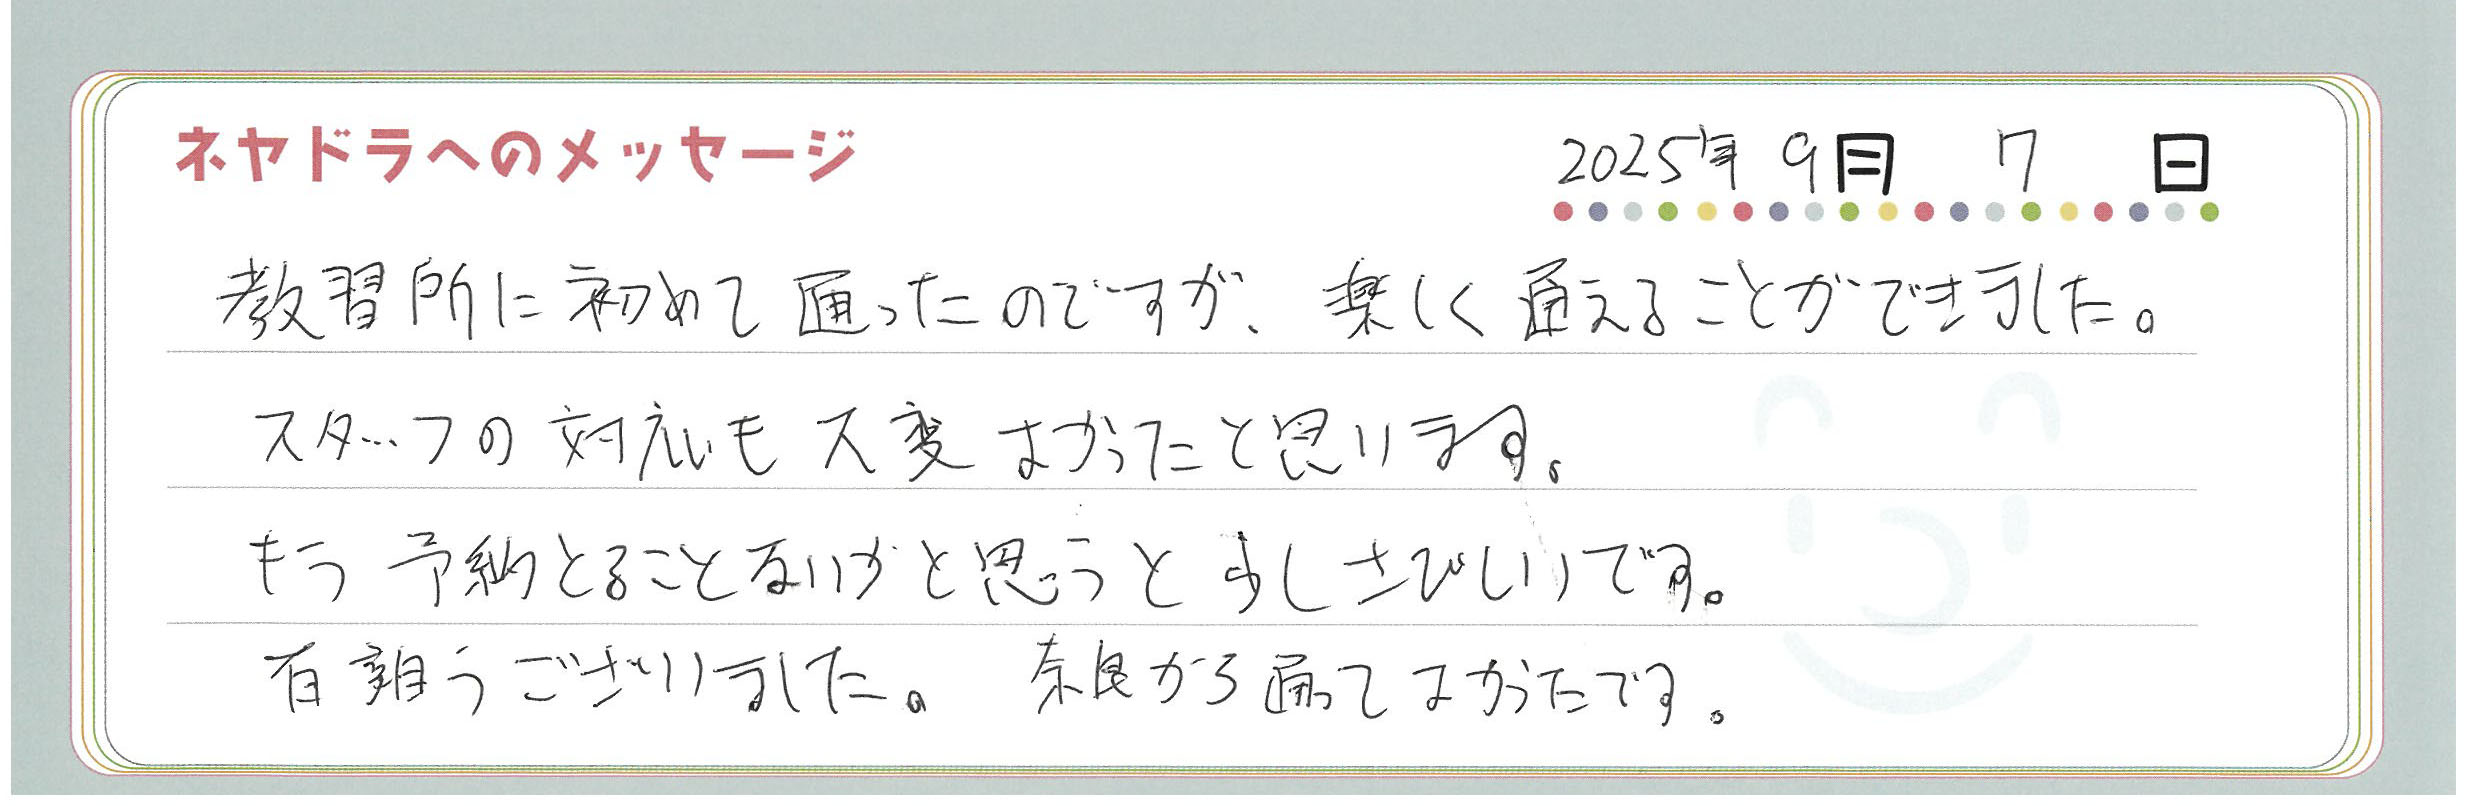 ネヤドラへのメッセージ
2025年 9月 7 日
教習所に初めて通ったのですが、楽しく通えることができました。
スタッフの対応も大変よかったと思います。
もう予約とることないかと思うと少しさびしいです。
有難うございました。 奈良から通ってよかったです。